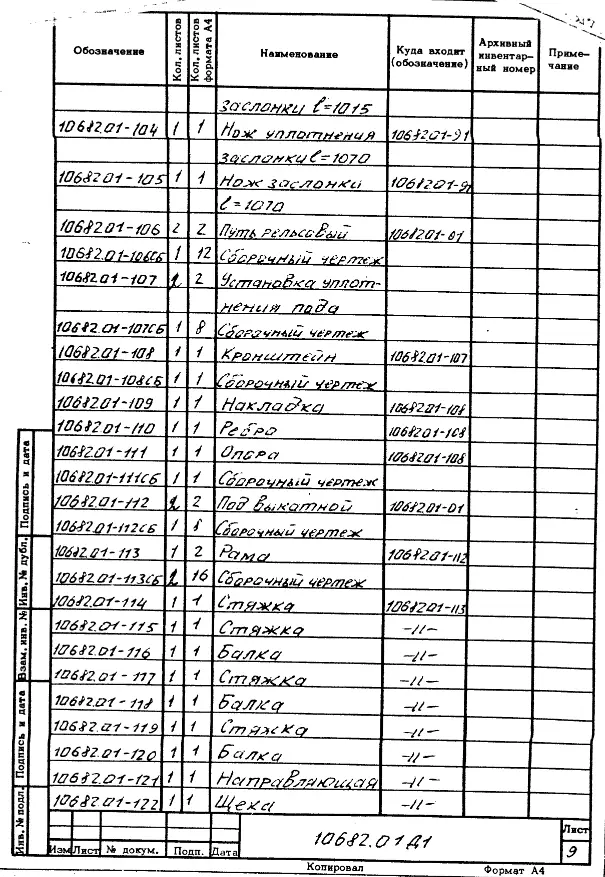 Обозначение Кол. листов Кол. листов формата А4 Наименование Куда входит (обозначение) Архивный инвентар-ный номер Приме-чание
заслонки l=1015
10682.01-104 1 1 Нож уплотнения 10682.01-91
заслонки l=1070
10682.01-105 1 1 Нож заслонки 10682.01-91
l=1070
10682.01-106 2 2 Путь рельсовый 10682.01-01
10682.01-106СБ 1 12 Сборочный чертеж
10682.01-107 2 2 Установка уплот-
нения пода
10682.01-107СБ 1 8 Сборочный чертеж
10682.01-108 1 1 Кронштейн 10682.01-107
10682.01-108СБ 1 1 Сборочный чертеж
10682.01-109 1 1 Накладка 10682.01-108
10682.01-110 1 1 Ребро 10682.01-108
10682.01-111 1 1 Опора 10682.01-108
10682.01-111СБ 1 1 Сборочный чертеж
10682.01-112 2 2 Под выкатной 10682.01-01
10682.01-112СБ 1 8 Сборочный чертеж
10682.01-113 1 2 Рама 10682.01-112
10682.01-113СБ 2 16 Сборочный чертеж
10682.01-114 1 1 Стяжка 10682.01-113
10682.01-115 1 1 Стяжка -//-
10682.01-116 1 1 Балка -//-
10682.01-117 1 1 Стяжка -//-
10682.01-118 1 1 Балка -//-
10682.01-119 1 1 Стяжка -//-
10682.01-120 1 1 Балка -//-
10682.01-121 1 1 Направляющая -//-
10682.01-122 1 1 Щека -//-
Инв. № подл. Подпись и дата Взам. инв. № Инв. № дубл. Подпись и дата
10682.01Д1
Лист
9
Изм Лист № докум. Подп. Дата
Копировал Формат А4